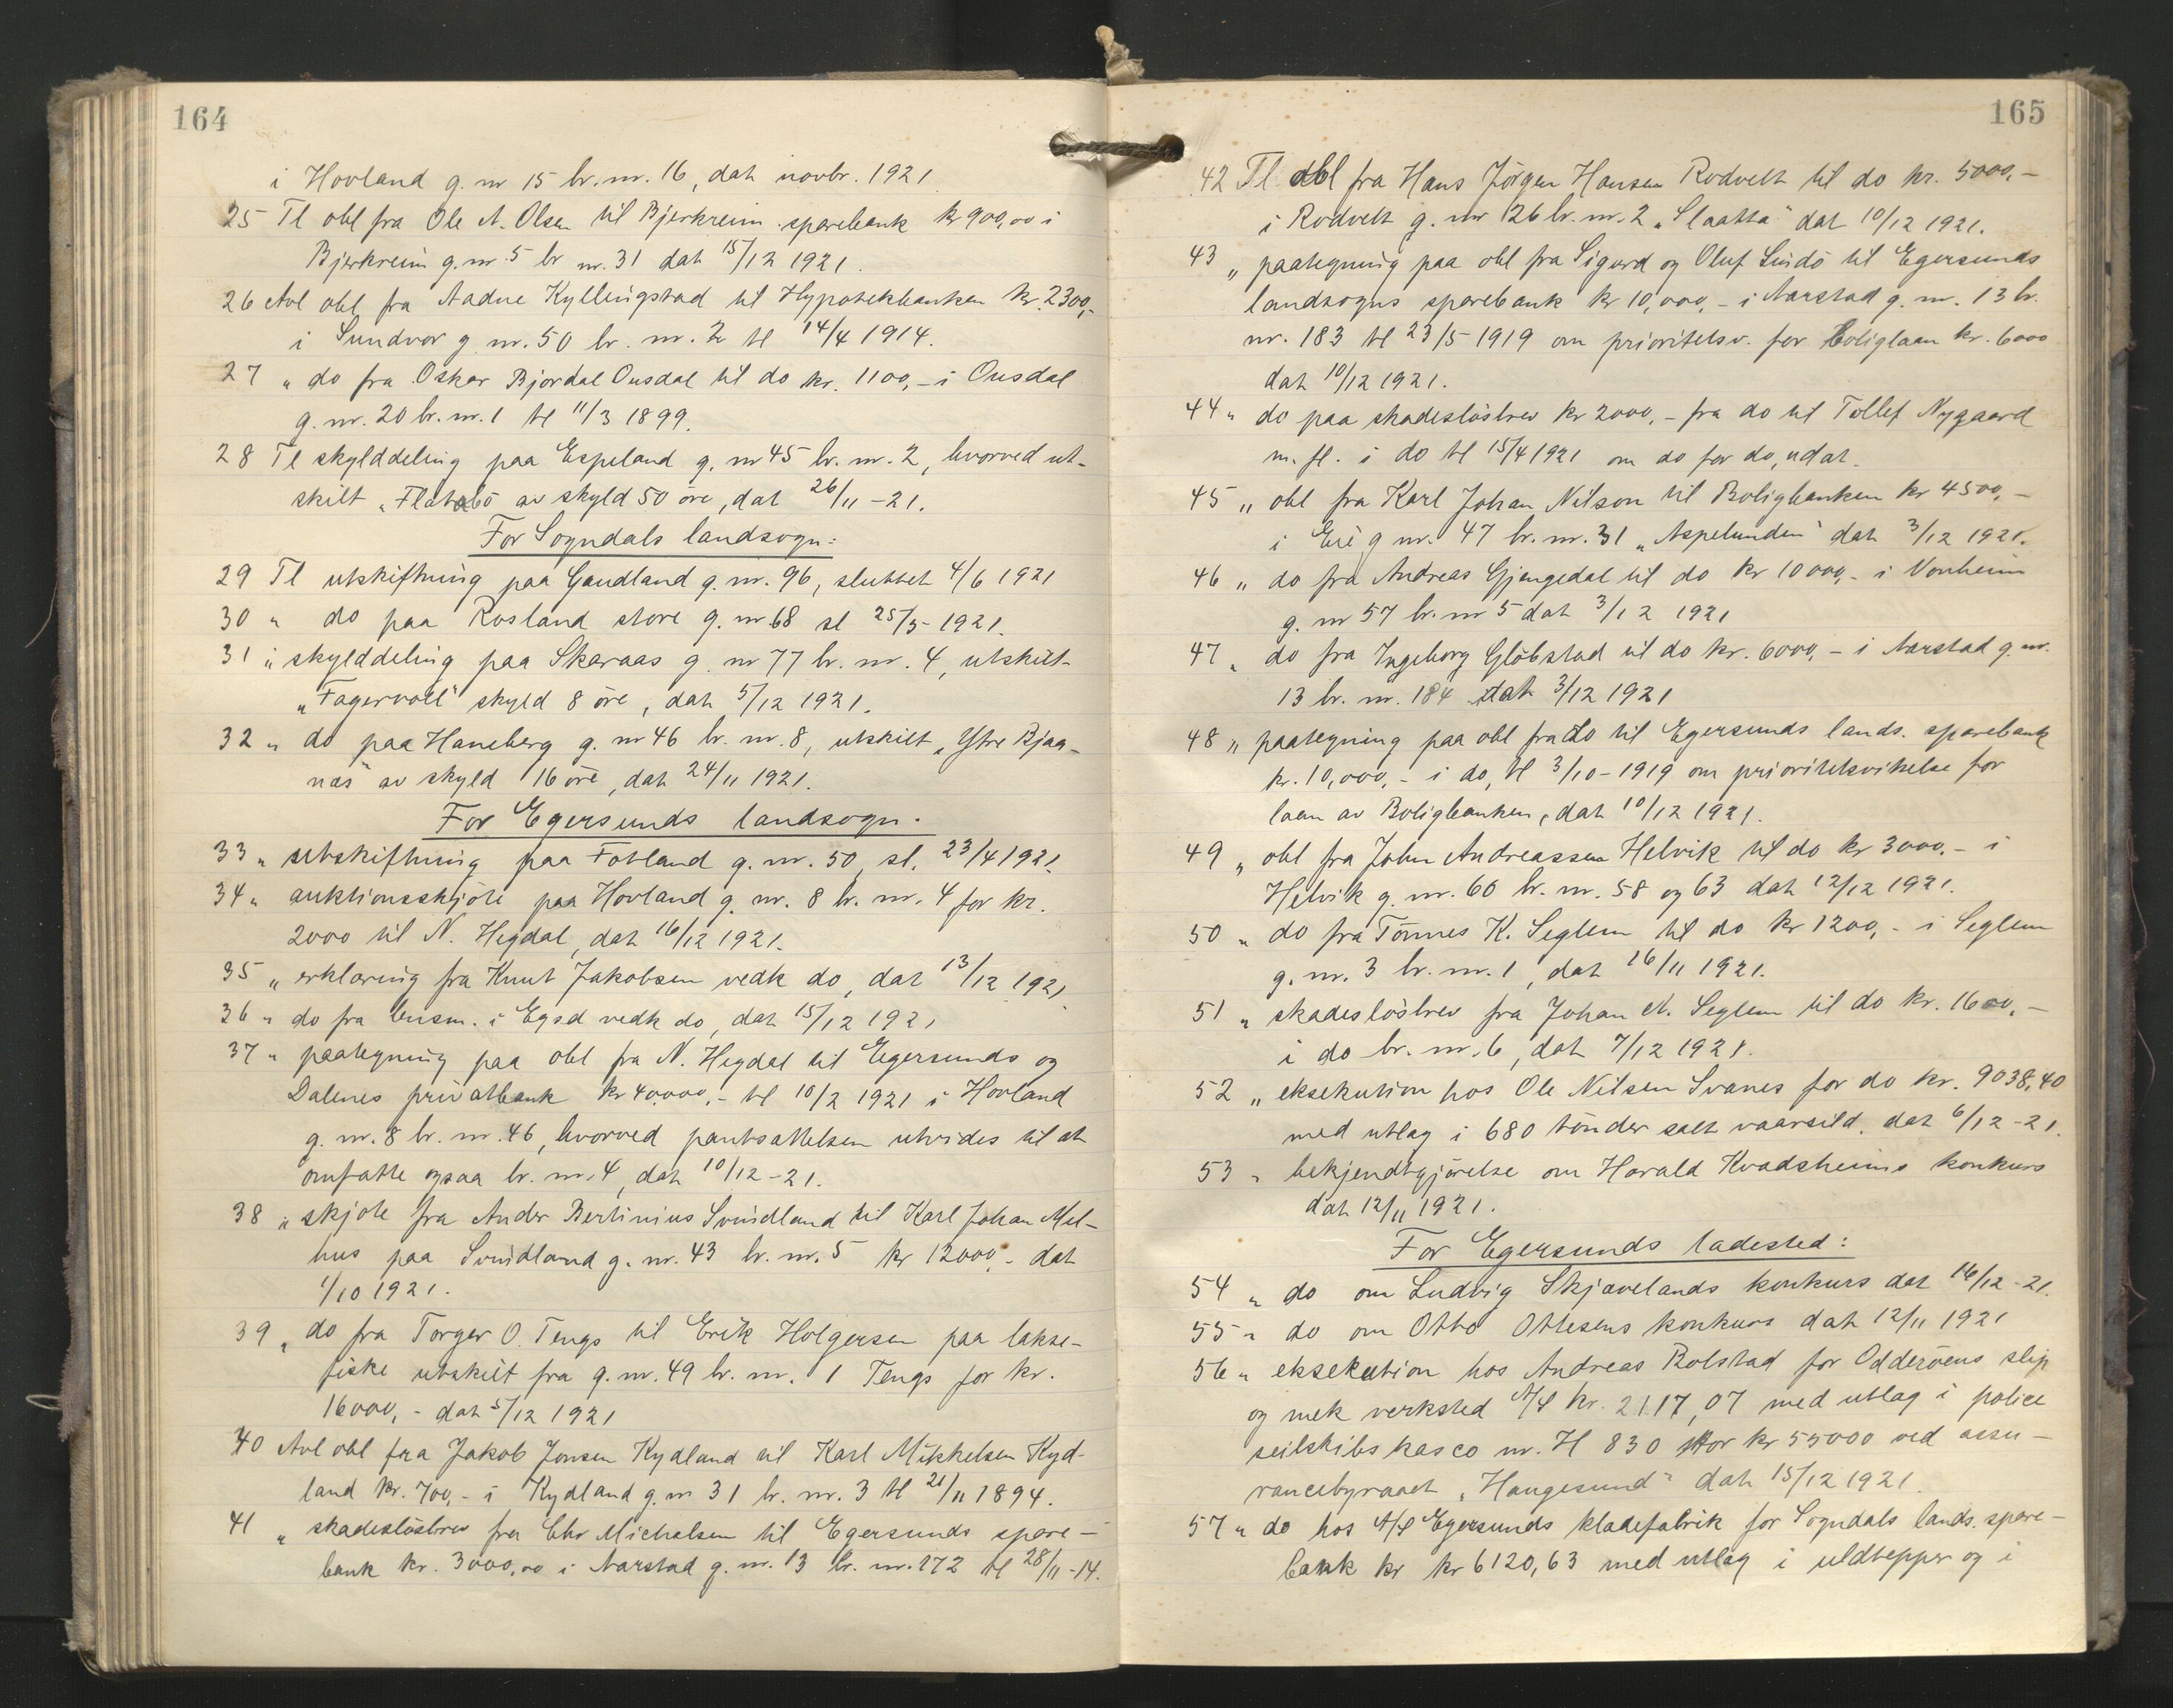 164
i Hovland g. nr 15 br. nr. 16, dat novbr. 1921
25 Tl obl fra Ole A. Olsen til Bjerkreim sparebank kr 900,00 i
Bjerkreim g. nr. 5 br nr. 31 dat 15/12 1921.
26 Avl obl fra Aadne Kyllingstad til Hypotekbanken kr. 2300,-
i Sundvor g. nr. 50 br. nr. 2 tl 14/4 1914.
27 " do fra Oskar Bjordal Ousdal til do kr. 1100,- i Ousdal
g. nr. 20 br. nr. 1 tl 11/3 1899.
28 Tl skylddeling paa Espeland g. nr 45 br. nr. 2, hvorved ut-
skilt „Flatabö av skyld 50 öre, dat 26/11 -21.
For Sogndals landsogn:
29 Tl utskiftning paa Gandland g. nr. 96, sluttet 4/6 1921
30 " do paa Rosland store g. nr 68 sl 25/5 1921.
31 " skylddeling paa Skaraas g. nr 77 br. nr. 4, utskilt
„Fagervoll" skyld 8 öre, dat 5/12 1921.
32 " do paa Haneberg g. nr 46 br. nr. 8, utskilt „Ytre Bjaa-
næs" av skyld 16 öre, dat 24/11 1921.
For Egersunds landsogn.
33 " utskiftning paa Fotland g. nr. 50, sl. 23/4 1921.
34 " auktionsskjöte paa Hovland g. nr. 8 br. nr. 4 for kr.
2000 til N. Hegdal, dat 16/12 1921.
35 " erklæring fra Knut Jakobsen vedk do, dat 13/12 1921
36 " do fra lensm. i Egsd vedk do, dat 15/12 1921
37 " paategning paa obl fra N. Hegdal til Egersunds og
Dalenes privatbank kr 40.000,- tl 10/2 1921 i Hovland
g. nr. 8 br. nr. 46, hvorved pantsættelsen utvides til at
omfatte ogsaa br. nr. 4, dat 10/12 -21.
38 " skjöte fra Ander Bertinius Svindland til Karl Johan Mel-
hus paa Svindland g. nr. 43 br. nr. 5 kr 12000,- dat
1/10 1921.
39 " do fra Torger O. Tengs til Erik Holgersen paa lakse-
fiske utskilt fra g. nr. 49 br. nr. 1 Tengs for kr.
16000,- dat 5/12 1921
40 Avl obl fra Jakob Jonsen Kydland til Karl Mikkelsen Kyd-
land kr. 700,- i Kydland g. nr 31 br. nr. 3 tl 21/11 1894.
41 " skadeslösbrev fra Chr Michelsen til Egersunds spare-
bank kr. 3000,00 i Aarstad g. nr. 13 br. nr. 172 tl 28/11 -14.
165
42 Tl obl fra Hans Jörgen Hansen Rodvelt til do kr. 5000,-
i Rodvelt g. nr 126 br. nr. 2 „Slaatta" dat 10/12 1921.
43 " paategning paa obl fra Sigurd og Oluf Lindö til Egersunds
landsogns sparebank kr 10,000,- i Aarstad g. nr. 13 br.
nr. 183 tl 23/5 1919 om prioritetsv. for boliglaan kr. 6000
dat 10/12 1921.
44 " do paa skadeslösbrev kr 2000,- fra do til Tollef Nygaard
m. fl. i do tl 15/4 1921 om do for do, udat.
45 " obl fra Karl Johan Nilson til Boligbanken kr 4500,-
i Eie g nr. 47 br. nr. 31 „Aspelunden" dat 3/12 1921.
46 " do fra Andreas Gjengedal til do kr 10000,- i Vonheim
g. nr 57 br. nr 5 dat 3/12 1921
47 " do fra Ingeborg Glöbstad til do kr. 6000,- i Aarstad g. nr.
13 br. nr. 184 dat 3/12 1921
48 " paategning paa obl fra do til Egersunds lands. sparebank
kr. 10,000,- i do, tl 3/10 - 1919 om prioritetsvikelse for
laan av Boligbanken, dat 10/12 1921.
49 " obl fra John Andreassen Helvik til do kr 3000,- i
Helvik g. nr. 60 br. nr. 58 og 63 dat 12/12 1921.
50 " do fra Tönnes K. Seglem til do kr 1200,- i Seglem
g. nr. 3 br. nr. 1, dat 16/11 1921.
51 " skadeslösbrev fra Johan A. Seglem til do kr. 1600,-
i do br. nr. 6, dat 7/12 1921.
52 " eksekution hos Ole Nilsen Svanes for do kr. 9038,40
med utlæg i 680 tönder salt vaarsild, dat 6/12 -21.
53 " bekjendtgjörelse om Harald Kvadsheims konkurs
dat 12/11 1921.
For Egersunds ladested:
54 " do om Ludvig Skjævelands konkurs dat 16/12 -21.
55 " do om Otto Ottesens konkurs dat 12/11 1921
56 " eksekution hos Andreas Rolstad for Odderöens slip
og mek verksted A/S kr. 2117,07 med utlæg i police
seilskibskasco nr. H 830 stor kr 55000 ved assu-
rancebyraaet „Haugesund" dat 15/12 1921.
57 " do hos A/S Egersunds klædefabrik for Sogndals lands. spare-
bank kr kr 6120,63 med utlæg i uldtepper og i